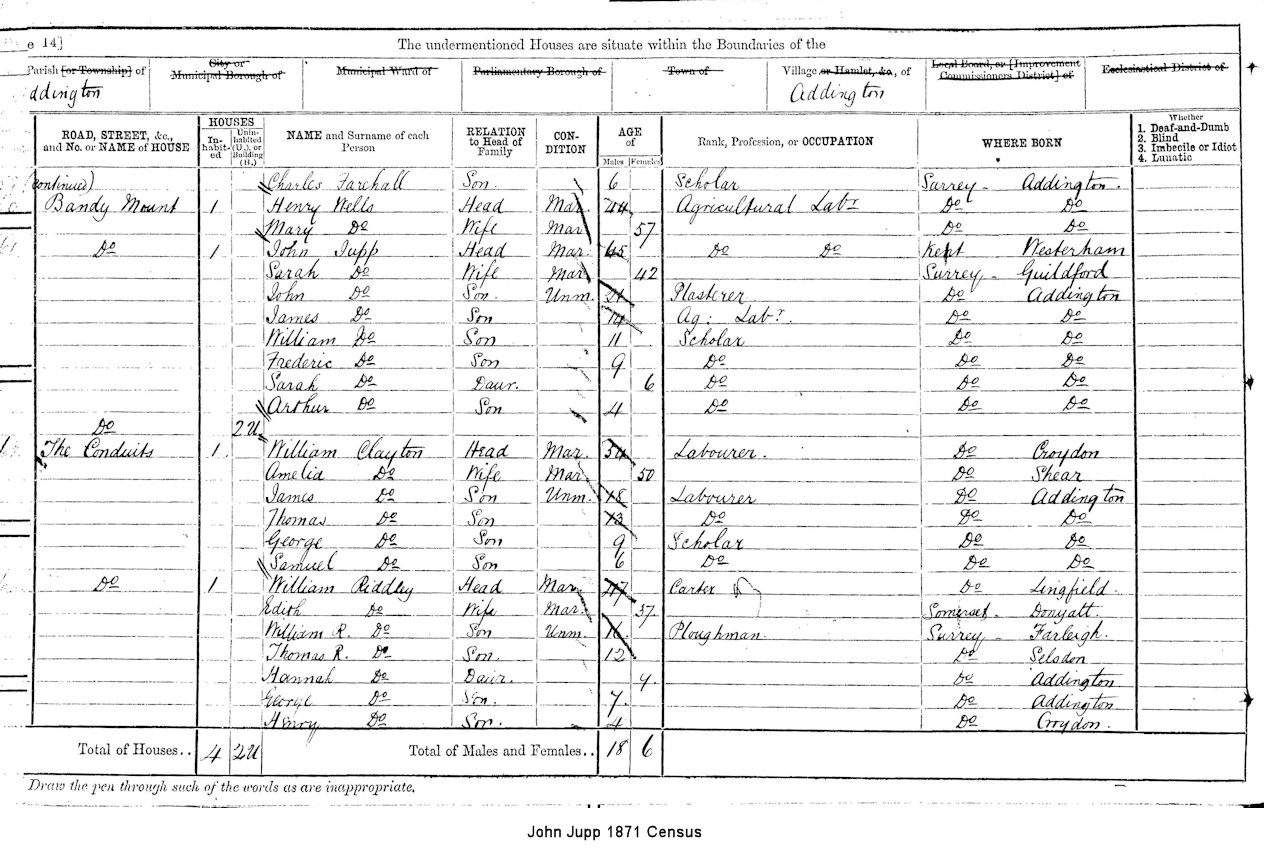 e 14]
The undermentioned Houses are situate within the Boundaries of the
Parish [or Township] of City or Municipal Borough of Municipal Ward of Parliamentary Borough of Town of Village or Hamlet, &c., of Local Board, or [Improvement Commissioners District] of Ecclesiastical District of
ddington Addington
ROAD, STREET, &c., and No. or NAME of HOUSE HOUSES Inhabited Uninhabited (U.), or Building (B.) NAME and Surname of each Person RELATION to Head of Family CONDITION AGE of Males Females Rank, Profession, or OCCUPATION WHERE BORN Whether 1. Deaf-and-Dumb 2. Blind 3. Imbecile or Idiot 4. Lunatic
(continued) Charles Farehall Son. 6 Scholar Surrey - Addington.
Bandy Mount 1 Henry Wells Head Mar. 44 Agricultural Labr Do Do
Mary Do Wife Mar 57 Do Do
Do 1 John Jupp Head Mar. 45 Do Do Kent Westerham
Sarah Do Wife Mar 42 Surrey - Guildford
John Do Son. Unm. 21 Plasterer Do Addington
James Do Son 14 Ag: Labr. Do Do
William Do Son 11 Scholar Do Do
Frederic Do Son 9 Do Do Do
Sarah Do Daur. 6 Do Do Do
Arthur Do Son 4 Do Do Do
Do 2U
The Conduits 1 William Clayton Head Mar. 54 Labourer. Do Croydon
Amelia Do Wife Mar 50 Do Shear
James Do Son Unm. 18 Labourer Do Addington
Thomas Do Son 13 Do Do Do
George Do Son 9 Scholar Do Do
Samuel Do Son 6 Do Do Do
Do 1 William Riddley Head Mar. 47 Carter Do Lingfield.
Edith Do Wife Mar. 37 Somerset - Donyatt.
William R. Do Son Unm. 16 Ploughman. Surrey - Farleigh.
Thomas R. Do Son. 12 Do Selsdon
Hannah Do Daur. 9. Do Addington
George Do Son. 7. Do Addington
Henry Do Son. 4 Do Croydon.
Total of Houses.. 4 2U Total of Males and Females.. 18 6
Draw the pen through such of the words as are inappropriate.
John Jupp 1871 Census